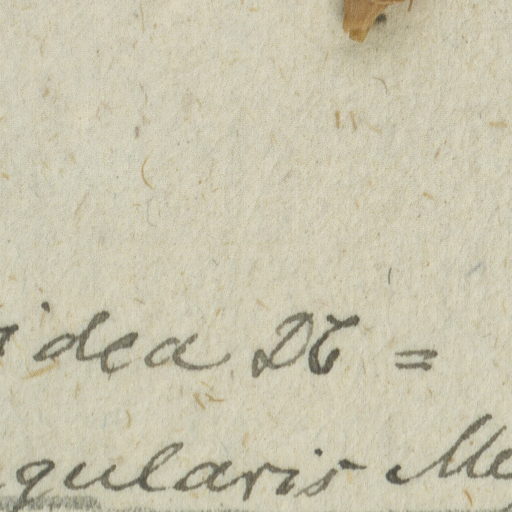 idea DC =
gularis Me